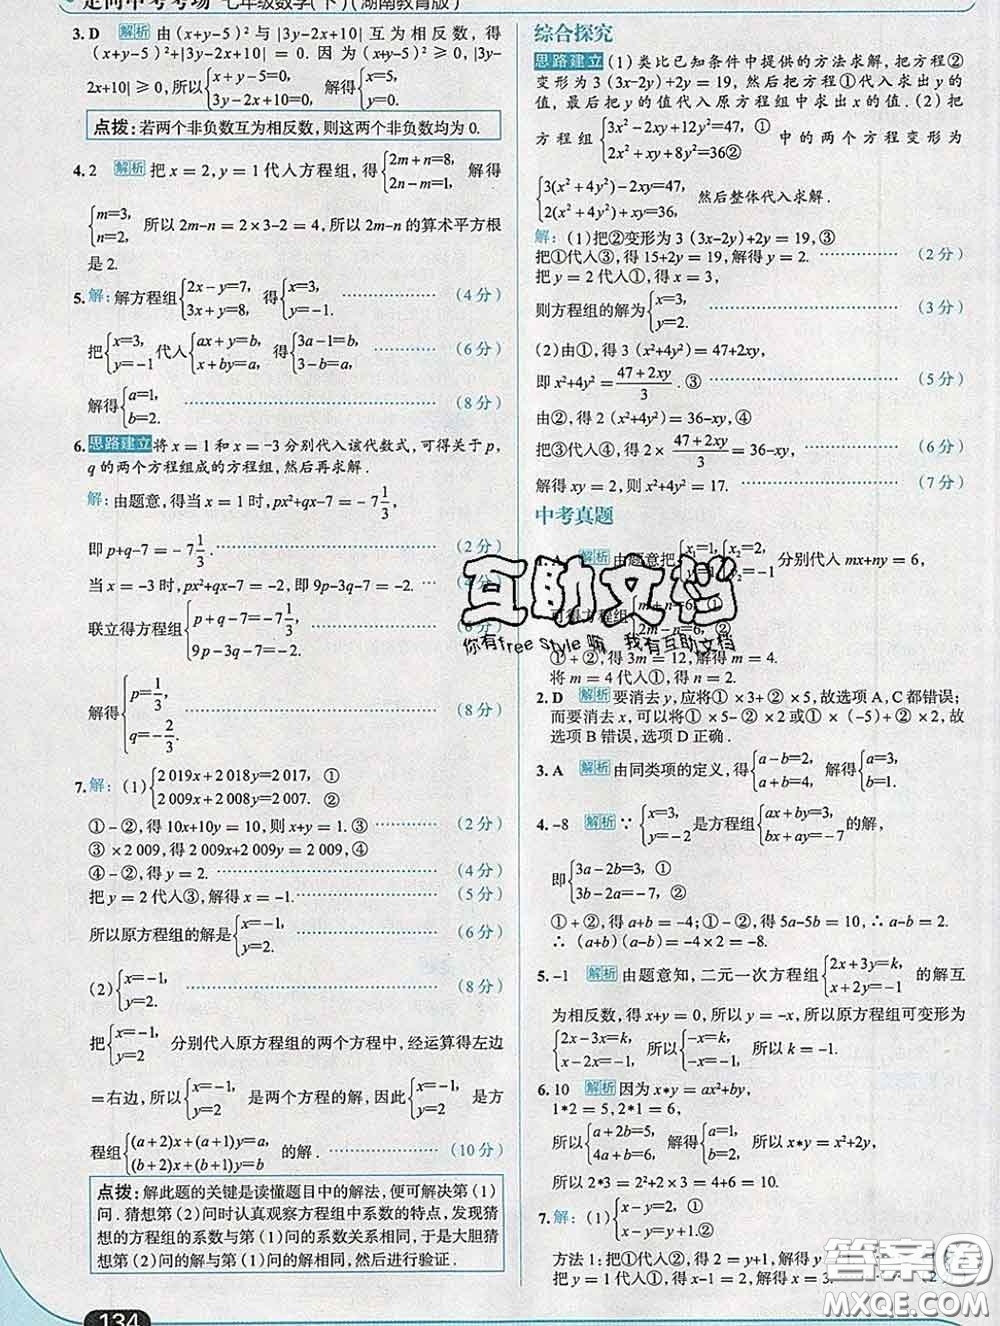 走向中考考场 七年级数学(下)(湖南教育版)
3. D 解析 由(x+y-5)²与|3y-2x+10|互为相反数,得
(x+y-5)²+|3y-2x+10|=0. 因为(x+y-5)²≥0, |3y-
2x+10|≥0, 所以{x+y-5=0, 3y-2x+10=0, 解得{x=5, y=0.
点拨:若两个非负数互为相反数,则这两个非负数均为0.
4. 2 解析 把x=2, y=1代入方程组, 得{2m+n=8, 2n-m=1, 解得
{m=3, n=2, 所以2m-n=2×3-2=4, 所以2m-n的算术平方根
是2.
5. 解:解方程组{2x-y=7, 3x+y=8, 得{x=3, y=-1. (4分)
把{x=3, y=-1代入{ax+y=b, x+by=a, 得{3a-1=b, 3-b=a, (6分)
解得{a=1, b=2. (8分)
6. 思路建立 将x=1和x=-3分别代入该代数式,可得关于p,
q的两个方程组成的方程组,然后再求解.
解:由题意,得当x=1时, px²+qx-7=-7 1/3,
即p+q-7=-7 1/3. (2分)
当x=-3时, px²+qx-7=-2, 即9p-3q-7=-2. (4分)
联立得方程组{p+q-7=-7 1/3, 9p-3q-7=-2. (6分)
解得{p=1/3, q=-2/3. (8分)
7. 解:(1){2 019x+2 018y=2 017, ① 2 009x+2 008y=2 007. ②
①-②,得10x+10y=10,则x+y=1. ③ (2分)
③×2 009,得2 009x+2 009y=2 009, ④
④-②,得y=2. (4分)
把y=2代入③,解得x=-1. (5分)
所以原方程组的解是{x=-1, y=2. (6分)
(2){x=-1, y=2. (8分)
把{x=-1, y=2 分别代入原方程组的两个方程中,经运算得左边
=右边,所以{x=-1, y=2 是两个方程的解,因此{x=-1, y=2 是方
程组{(a+2)x+(a+1)y=a, (b+2)x+(b+1)y=b 的解. (10分)
点拨:解此题的关键是读懂题目中的解法,便可解决第(1)
问.猜想第(2)问时认真观察方程组中系数的特点,发现猜
想的方程组的系数与第(1)问的系数关系相同,于是大胆猜
想第(2)问的解与第(1)问的解相同,然后进行验证.
134
综合探究
思路建立 (1)类比已知条件中提供的方法求解,把方程②
变形为3(3x-2y)+2y=19,然后把方程①代入求出y的
值,最后把y的值代入原方程组中求出x的值.(2)把
方程组{3x²-2xy+12y²=47, ① 2x²+xy+8y²=36② 中的两个方程变形为
{3(x²+4y²)-2xy=47, 2(x²+4y²)+xy=36, 然后整体代入求解.
解:(1)把②变形为3(3x-2y)+2y=19, ③
把①代入③,得15+2y=19,解得y=2. (2分)
把y=2代入①,得x=3,
则方程组的解为{x=3, y=2. (3分)
(2)由①,得3(x²+4y²)=47+2xy,
即x²+4y²=(47+2xy)/3. ③ (5分)
由②,得2(x²+4y²)=36-xy, ④
把③代入④,得2×(47+2xy)/3=36-xy, (6分)
解得xy=2,则x²+4y²=17. (7分)
中考真题
A 解析 由题意把{x₁=1, {x₂=2, y₂=-1分别代入mx+ny=6,
可得方程组{m+n=6, ① 2m-n=6, ②
①+②,得3m=12,解得m=4.
将m=4代入①,得n=2.
2. D 解析 要消去y,应将①×3+②×5,故选项A、C都错误;
而要消去x,可以将①×5-②×2或①×(-5)+②×2,故
选项B错误,选项D正确.
3. A 解析 由同类项的定义,得{a-b=2, a+b=4, 解得{a=3, b=1.
4. -8 解析 ∵{x=3, y=-2是方程组{ax+by=3, bx+ay=-7的解,
即{3a-2b=3, ① 3b-2a=-7, ②
①+②,得a+b=-4;①-②,得5a-5b=10,∴a-b=2.
∴(a+b)(a-b)=-4×2=-8.
5. -1 解析 由题意知,二元一次方程组{2x+3y=k, x+2y=-1 的解互
为相反数,得x+y=0,所以y=-x,所以原方程组可变形为
{2x-3x=k, x-2x=-1, 所以{-x=k, -x=-1, 所以k=-1.
6. 10 解析 因为x*y=ax²+by,
1*2=5, 2*1=6,
所以{a+2b=5, 4a+b=6, 解得{a=1, b=2, 所以x*y=x²+2y,
所以2*3=2²+2×3=4+6=10.
7. 解:(1){x-y=2, ① x-y=y+1.②
方法1:把①代入②,得2=y+1,解得y=
把y=1代入①,得x-1=2,解得x=3. (2
互助文档
你有free Style嘛 我有互助文档
答案圈
MXQE.COM